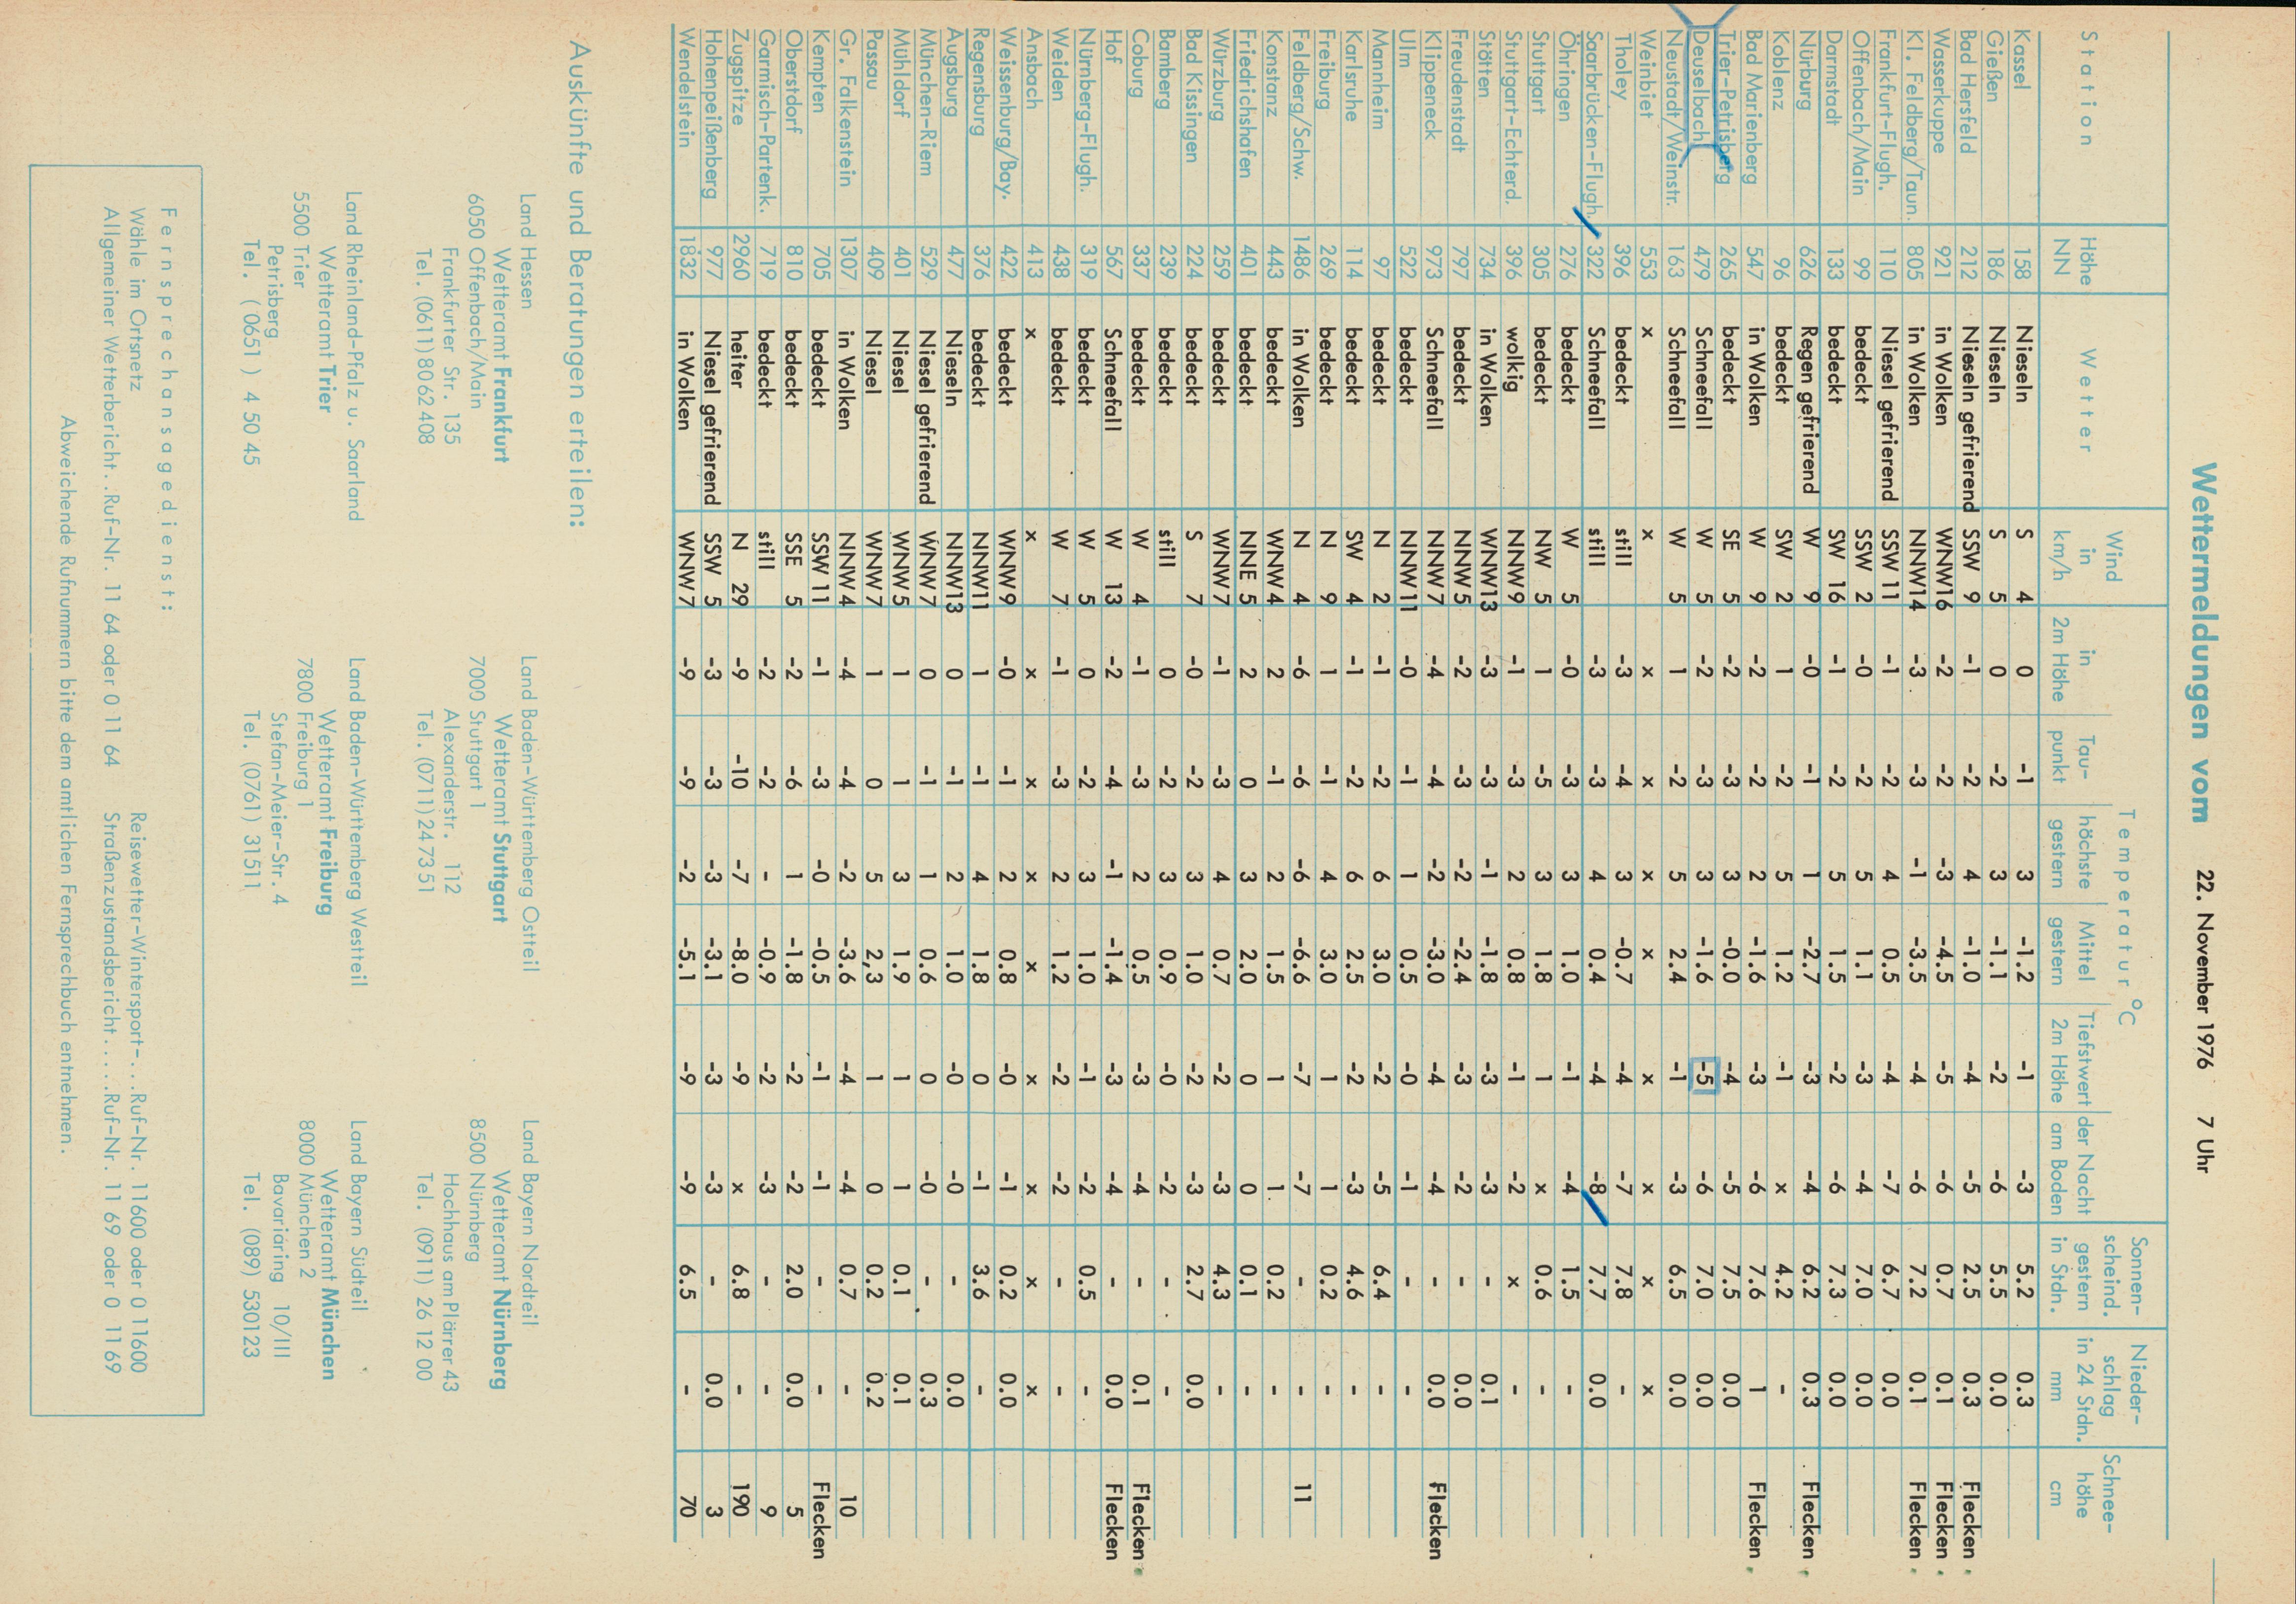 Wettermeldungen vom 22. November 1976 7 Uhr
Station Höhe NN Wetter Wind in km/h Temperatur °C in 2m Höhe Tau-punkt höchste gestern Mittel gestern Tiefstwert der Nacht 2m Höhe am Boden Sonnen-scheind. gestern in Stdn. Nieder-schlag in 24 Stdn. mm Schnee-höhe cm
Kassel 158 Nieseln S 4 0 -1 3 -1.2 -1 -3 5.2 0.3
Gießen 186 Nieseln S 5 0 -2 3 -1.1 -2 -6 5.5 0.0
Bad Hersfeld 212 Nieseln gefrierend SSW 9 -1 -2 4 -1.0 -4 -5 2.5 0.3 Flecken
Wasserkuppe 921 in Wolken WNW16 -2 -2 -3 -4.5 -5 -6 0.7 0.1 Flecken
Kl. Feldberg/Taun. 805 in Wolken NNW14 -3 -3 -1 -3.5 -4 -6 7.2 0.1 Flecken
Frankfurt-Flugh. 110 Niesel gefrierend SSW 11 -1 -2 4 0.5 -4 -7 6.7 0.0
Offenbach/Main 99 bedeckt SSW 2 -0 -2 5 1.1 -3 -4 7.0 0.0
Darmstadt 133 bedeckt SW 16 -1 -2 5 1.5 -2 -6 7.3 0.0
Nürburg 626 Regen gefrierend W 9 -0 -1 1 -2.7 -3 -4 6.2 0.3 Flecken
Koblenz 96 bedeckt SW 2 1 -2 5 1.2 -1 x 4.2 -
Bad Marienberg 547 in Wolken W 9 -2 -2 2 -1.6 -3 -6 7.6 1 Flecken
Trier-Petrisberg 265 bedeckt SE 5 -2 -3 3 -0.0 -4 -5 7.5 0.0
Deuselbach 479 Schneefall W 5 -2 -3 3 -1.6 -5 -6 7.0 0.0
Neustadt/Weinstr. 163 Schneefall W 5 1 -2 5 2.4 -1 -3 6.5 0.0
Weinbiet 553 x x x x x x x x x x
Tholey 396 bedeckt still -3 -4 3 -0.7 -4 -7 7.8 -
Saarbrücken-Flugh. 322 Schneefall still -3 -3 4 0.4 -4 -8 7.7 0.0
Öhringen 276 bedeckt W 5 -0 -3 3 1.0 -1 -4 1.5 -
Stuttgart 305 bedeckt NW 5 1 -5 3 1.8 1 x 0.6 -
Stuttgart-Echterd. 396 wolkig NNW9 -1 -3 2 0.8 -1 -2 x -
Stötten 734 in Wolken WNW13 -3 -3 -1 -1.8 -3 -3 - 0.1
Freudenstadt 797 bedeckt NNW5 -2 -3 -2 -2.4 -3 -2 - 0.0
Klippeneck 973 Schneefall NNW7 -4 -4 -2 -3.0 -4 -4 - 0.0 Flecken
Ulm 522 bedeckt NNW11 -0 -1 1 0.5 -0 -1 - -
Mannheim 97 bedeckt N 2 -1 -2 6 3.0 -2 -5 6.4 -
Karlsruhe 114 bedeckt SW 4 -1 -2 6 2.5 -2 -3 4.6 -
Freiburg 269 bedeckt N 9 1 -1 4 3.0 1 1 0.2 -
Feldberg/Schw. 1486 in Wolken N 4 -6 -6 -6 -6.6 -7 -7 - - 11
Konstanz 443 bedeckt WNW4 2 -1 2 1.5 1 1 0.2 -
Friedrichshafen 401 bedeckt NNE 5 2 0 3 2.0 0 0 0.1 -
Würzburg 259 bedeckt WNW7 -1 -3 4 0.7 -2 -3 4.3 -
Bad Kissingen 224 bedeckt S 7 -0 -2 3 1.0 -2 -3 2.7 0.0
Bamberg 239 bedeckt still 0 -2 3 0.9 -0 -2 - -
Coburg 337 bedeckt W 4 -1 -3 2 0.5 -3 -4 - 0.1 Flecken
Hof 567 Schneefall W 13 -2 -4 -1 -1.4 -3 -4 - 0.0 Flecken
Nürnberg-Flugh. 319 bedeckt W 5 0 -2 3 1.0 -1 -2 0.5 -
Weiden 438 bedeckt W 7 -1 -3 2 1.2 -2 -2 - -
Ansbach 413 x x x x x x x x x x
Weissenburg/Bay. 422 bedeckt WNW9 -0 -1 2 0.8 -0 -1 0.2 0.0
Regensburg 376 bedeckt NNW11 1 -1 4 1.8 0 -1 3.6 -
Augsburg 477 Nieseln NNW13 0 -1 2 1.0 -0 -0 - 0.0
München-Riem 529 Niesel gefrierend WNW7 0 -1 1 0.6 0 -0 - 0.3
Mühldorf 401 Niesel WNW5 1 1 3 1.9 1 1 0.1 0.1
Passau 409 Niesel WNW7 1 0 5 2,3 1 0 0.2 0.2
Gr. Falkenstein 1307 in Wolken NNW4 -4 -4 -2 -3.6 -4 -4 0.7 - 10
Kempten 705 bedeckt SSW 11 -1 -3 -0 -0.5 -1 -1 - - Flecken
Oberstdorf 810 bedeckt SSE 5 -2 -6 1 -1.8 -2 -2 2.0 0.0 5
Garmisch-Partenk. 719 bedeckt still -2 -2 - -0.9 -2 -3 - - 9
Zugspitze 2960 heiter N 29 -9 -10 -7 -8.0 -9 x 6.8 - 190
Hohenpeißenberg 977 Niesel gefrierend SSW 5 -3 -3 -3 -3.1 -3 -3 - 0.0 3
Wendelstein 1832 in Wolken WNW7 -9 -9 -2 -5.1 -9 -9 6.5 - 70
Auskünfte und Beratungen erteilen:
Land Hessen
Wetteramt Frankfurt
6050 Offenbach/Main
Frankfurter Str. 135
Tel. (0611) 80 62 408
Land Baden-Württemberg Ostteil
Wetteramt Stuttgart
7000 Stuttgart 1
Alexanderstr. 112
Tel. (0711) 24 73 51
Land Bayern Nordteil
Wetteramt Nürnberg
8500 Nürnberg
Hochhaus am Plärrer 43
Tel. (0911) 26 12 00
Land Rheinland-Pfalz u. Saarland
Wetteramt Trier
5500 Trier
Petrisberg
Tel. (0651) 4 50 45
Land Baden-Württemberg Westteil
Wetteramt Freiburg
7800 Freiburg 1
Stefan-Meier-Str. 4
Tel. (0761) 31511
Land Bayern Südteil
Wetteramt München
8000 München 2
Bavariaring 10/III
Tel. (089) 530123
Fernsprechansagedienst:
Wähle im Ortsnetz Reisewetter-Wintersport-...Ruf-Nr. 11600 oder 0 11600
Allgemeiner Wetterbericht..Ruf-Nr. 11 64 oder 0 11 64 Straßenzustandsbericht.....Ruf-Nr. 11 69 oder 0 11 69
Abweichende Rufnummern bitte dem amtlichen Fernsprechbuch entnehmen.